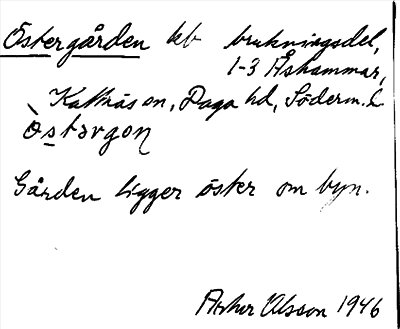 Östergården hb brukningsdel,
1-3 Åshammar,
Kattnäs sn, Daga hd, Söderm. l.
ö̀stərgo̥n
Gården ligger öster om byn.
Arthur Olsson 1946